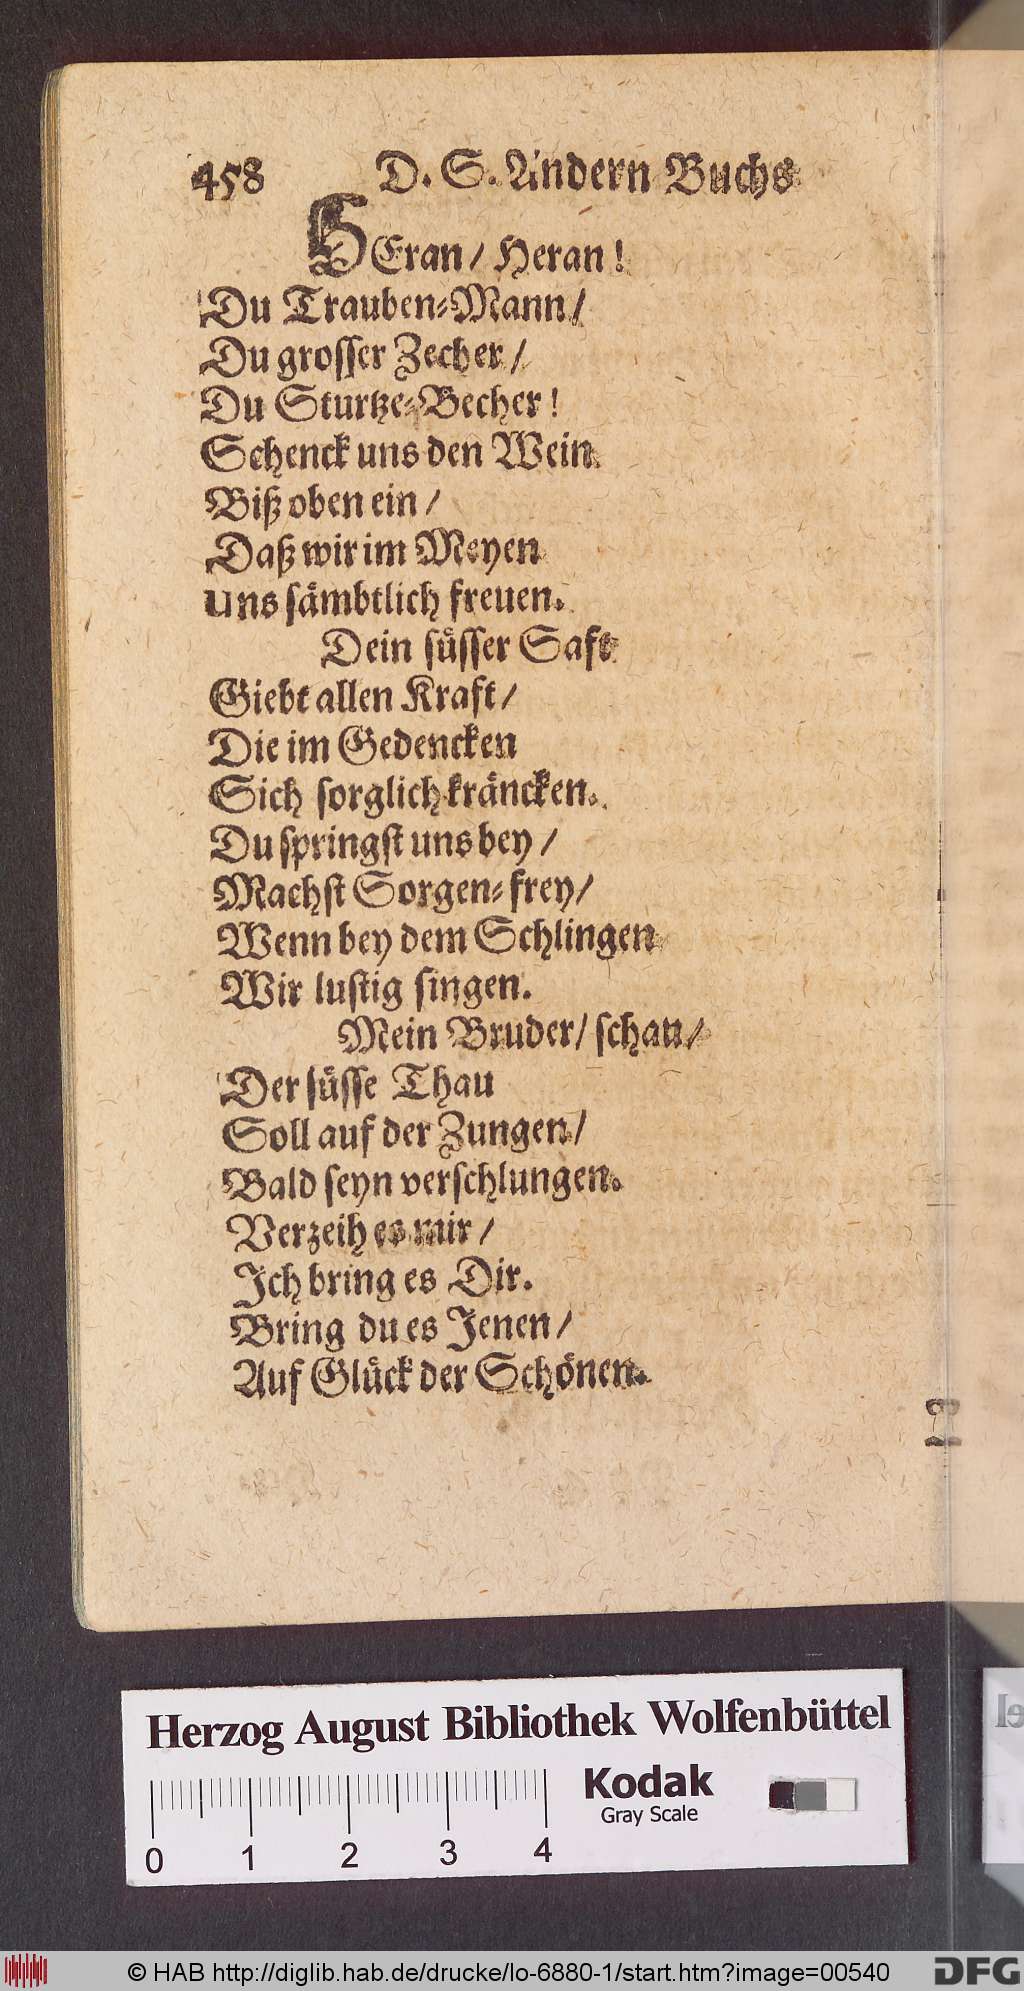 458 D. S. Andern Buchs
HEran / Heran!
Du Trauben-Mann /
Du grosser Zecher /
Du Sturtze-Becher!
Schenck uns den Wein
Biß oben ein /
Daß wir im Meyen
Uns sämbtlich freuen.
Dein süsser Saft
Giebt allen Kraft /
Die im Gedencken
Sich sorglich kräncken.
Du springst uns bey /
Machst Sorgen-frey /
Wenn bey dem Schlingen
Wir lustig singen.
Mein Bruder / schau /
Der süsse Thau
Soll auf der Zungen /
Bald seyn verschlungen.
Verzeih es mir /
Ich bring es Dir.
Bring du es Jenen /
Auf Glück der Schönen.
Herzog August Bibliothek Wolfenbüttel
Kodak
Gray Scale
0 1 2 3 4
© HAB http://diglib.hab.de/drucke/lo-6880-1/start.htm?image=00540
DFG